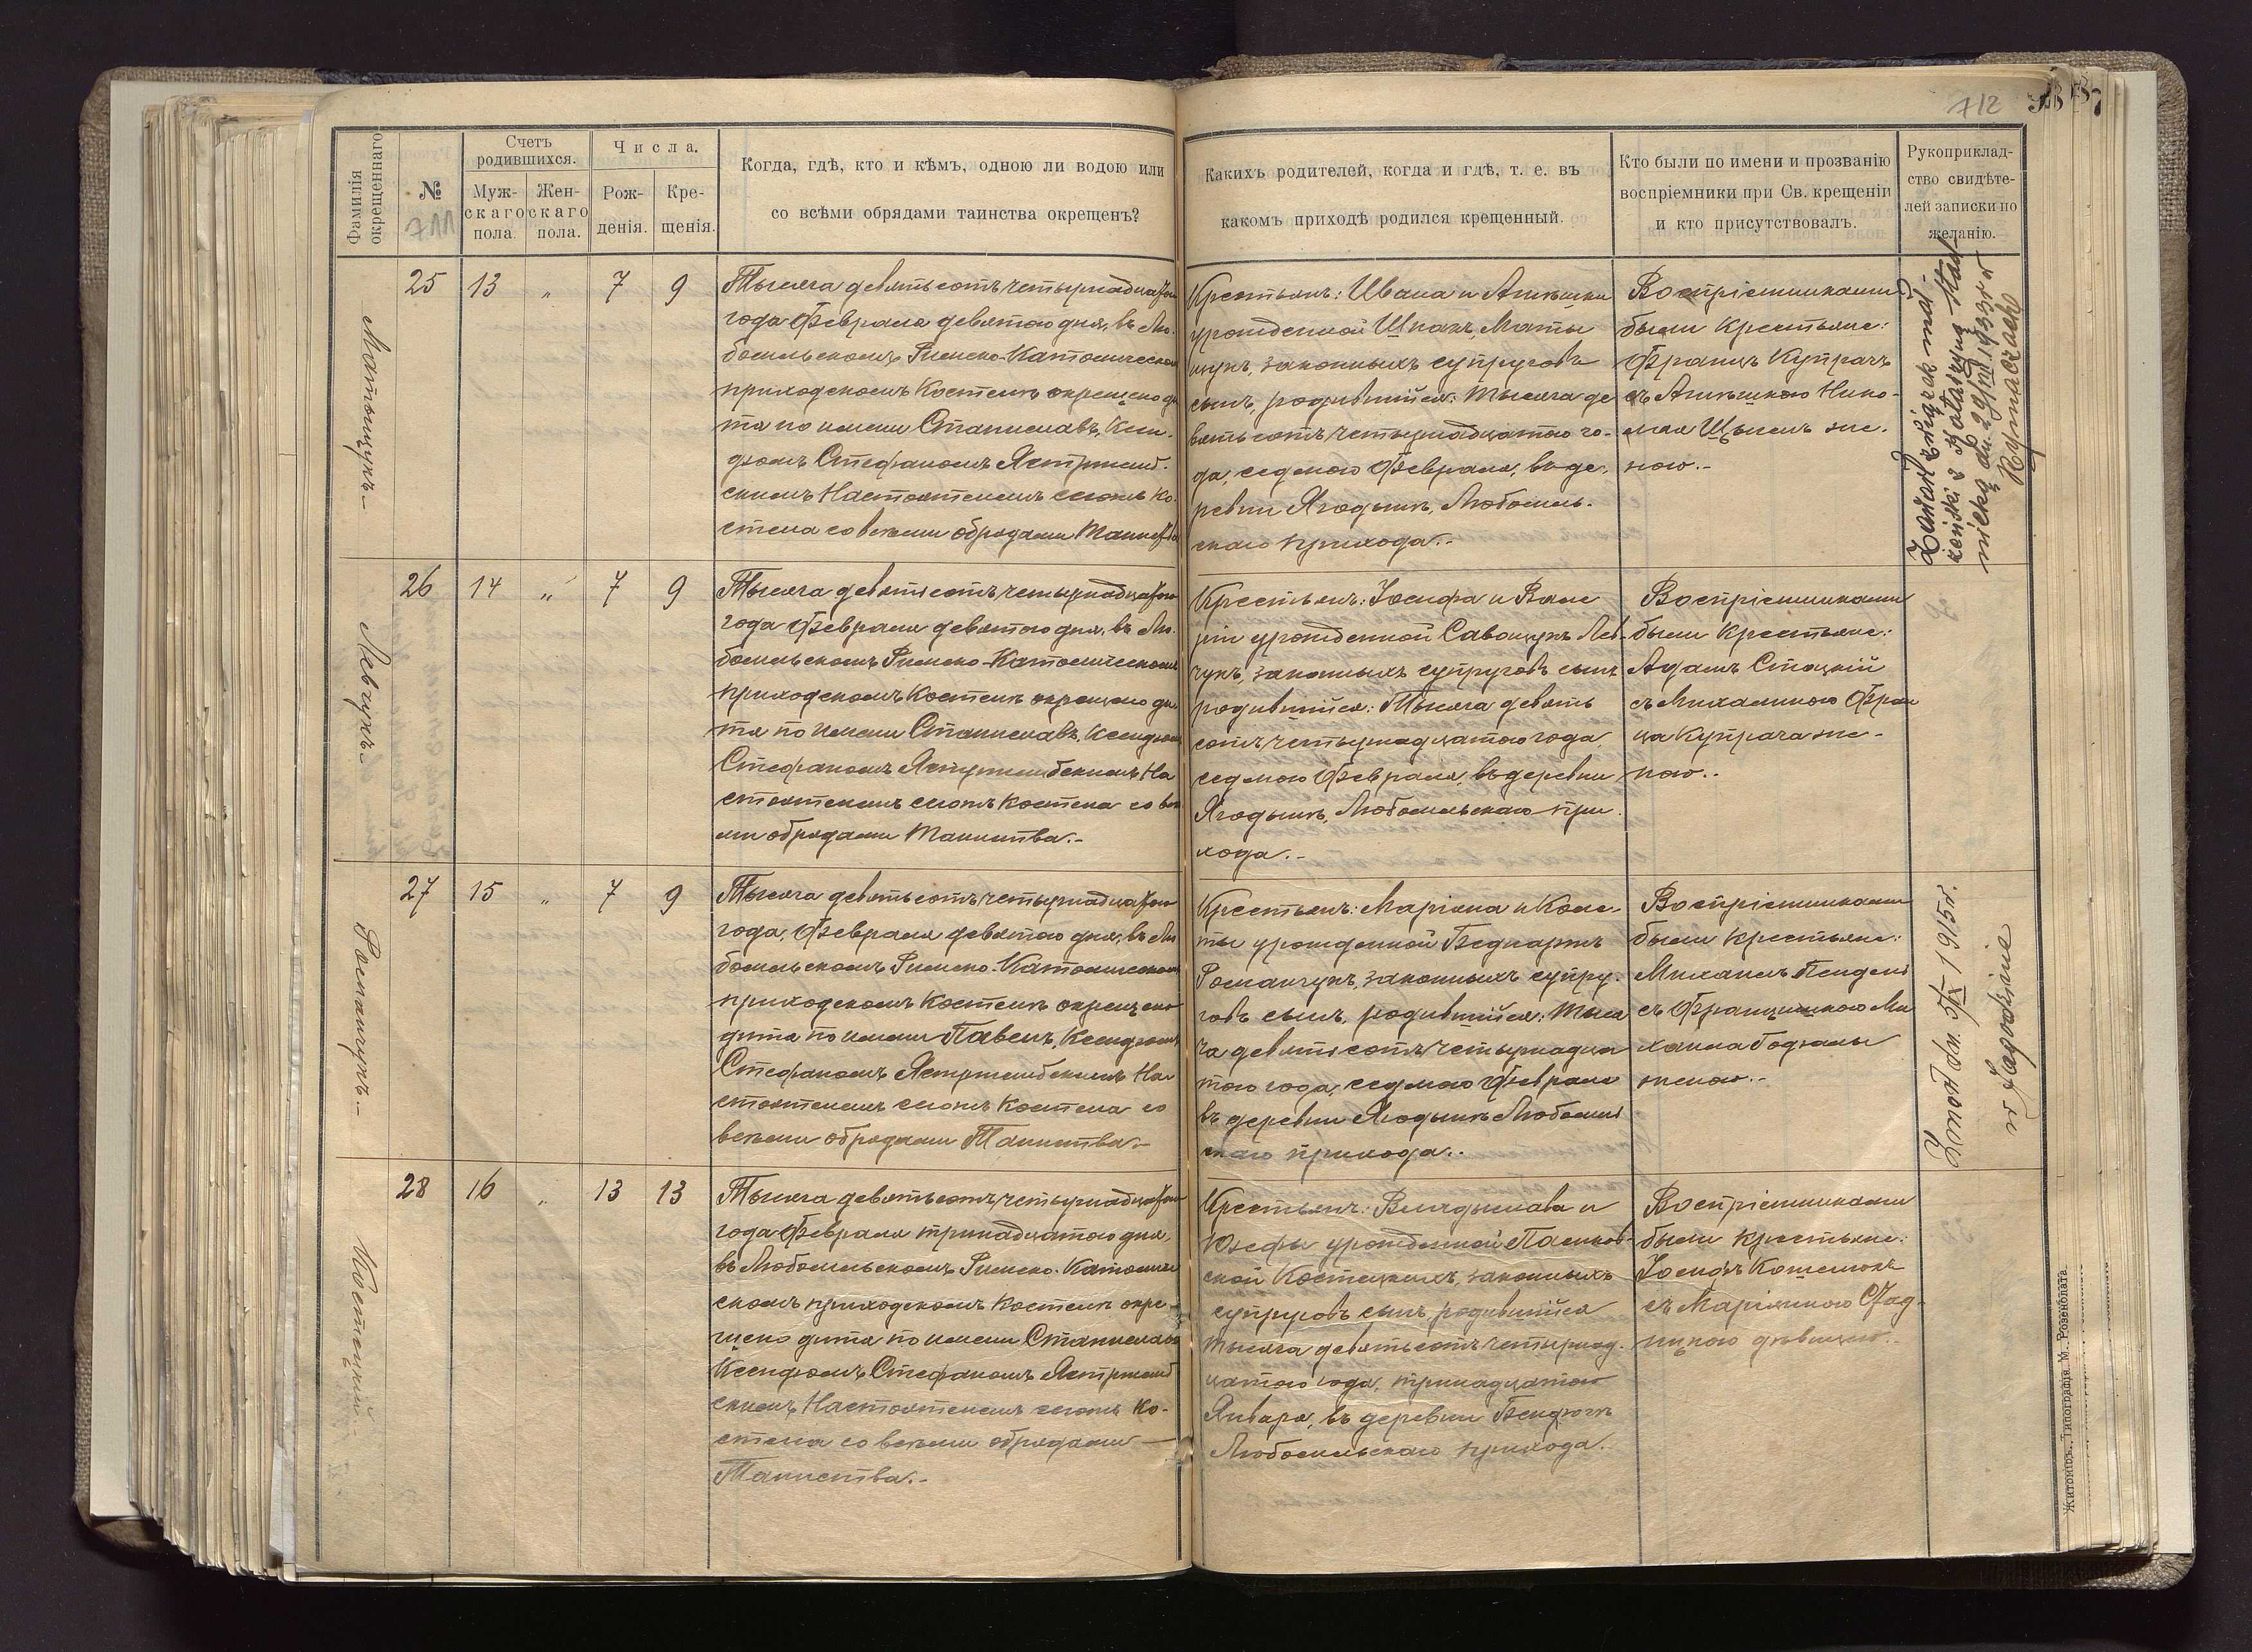 712
Фамилія окрещеннаго
№
711
Счетъ родившихся.
Муж-скаго пола.
Жен-скаго пола.
Числа.
Рож-денія.
Кре-щенія.
Когда, гдѣ, кто и кѣмъ, одною ли водою или
со всѣми обрядами таинства окрещенъ?
Какихъ родителей, когда и гдѣ, т. е. въ
какомъ приходѣ родился крещенный.
Кто были по имени и прозванію
воспріемники при Св. крещеніи
и кто присутствовалъ.
Рукоприклад-
ство свидѣте-
лей записки по
желанію.
Матыщукъ
25 13 „ 7 9
Тысяча девятьсотъ четырнадцатого
года Февраля девятого дня, въ Лю-
бомльскомъ Римско-Католическомъ
приходскомъ Костелѣ окрещено ди
тя по имени Станиславъ, Ксен-
дзомъ Стефаномъ Ястржемб-
скимъ Настоятелемъ сего Ко-
стела со всѣми обрядами Таинства
Крестьянъ: Ивана и
урожденной Шпакъ, Маты
щукъ, законныхъ супруговъ
сынъ, родившійся: Тысяча де
вятьсотъ четырнадцатого го-
да, седмого Февраля, въ де-
ревни Ягодынѣ, Любомль-
скаго прихода.-
Воспріемниками
были Крестьяне:
Францъ Купрачъ
съ Нико-
лая же-
ною.-
Zawarł związek mał-
żeński z Katarzyną
dn. 29/VII 1933 r. w
Rymaczach
Левчукъ
26 14 „ 7 9
Тысяча девятьсотъ четырнадцатого
года Февраля девятого дня, въ Лю-
бомльскомъ Римско-Католическомъ
приходскомъ Костелѣ окрещено ди
тя по имени Станиславъ, Ксендзомъ
Стефаномъ Ястржембскимъ На
стоятелемъ сего Костела со всѣ
ми обрядами Таинства.-
Крестьянъ: Іосифа и Вале
ріи урожденной Савощукъ Лев-
чукъ, законныхъ супруговъ сынъ
родившійся: Тысяча девять
сотъ четырнадцатого года,
седмого Февраля, въ деревни
Ягодынѣ, Любомльскаго при
хода.-
Воспріемниками
были Крестьяне:
Адамъ Стоцкій
съ Михалиною Фран
ца Купрача же-
ною..
Романчукъ.-
27 15 „ 7 9
Тысяча девятьсотъ четырнадцатого
года, Февраля девятого дня, въ Лю
бомльскомъ Римско-Католическомъ
приходскомъ Костелѣ окрещено
дитя по имени Павелъ, Ксендзомъ
Стефаномъ Ястржембскимъ На
стоятелемъ сего Костела со
всѣми обрядами Таинства.-
Крестьянъ: Маріяна и Коле-
ты урожденной Беднарукъ
Романчукъ, законныхъ супру-
говъ сынъ, родившійся: Тыся
ча девятьсотъ четырнадца
того года, седмого Февраля
въ деревни Ягодынѣ Любомль
скаго прихода..
Воспріемниками
были Крестьяне:
Михаилъ
съ Францишкою Ми
хаила
женою.-
Zmarł dn. 5/IX 1915 r.
w Jagodzinie
Костецкій.-
28 16 „ 13 13
Тысяча девятьсотъ четырнадцатого
года Февраля тринадцатого дня,
въ Любомльскомъ Римско-Католиче
скомъ приходскомъ Костелѣ окре-
щено дитя по имени Станиславъ
Ксендзомъ Стефаномъ Ястржемб
скимъ, Настоятелемъ сего Ко-
стела со всѣми обрядами
Таинства.-
Крестьянъ: Владыслава и
Юзефы урожденной
Костецкихъ, законныхъ
супруговъ сынъ, родившійся
тысяча девятьсотъ четырнад-
цатого года, тринадцатого
Января, въ деревни
Любомльскаго прихода.-
Воспріемниками
были Крестьяне:
Іосифъ
съ Маріянною
дѣвицею.-
Житоміръ, Типографія М. Розенблата.